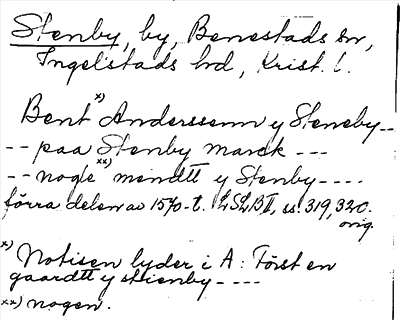 Stenby, by, Benestads sn,
Ingelstads hd, Krist. l.
Bent x) Anderssenn y Steneby --
-- paa Stenby marck ---
-- nogle xx) mendtt y Stenby ----
förra delen av 1570-t. LSLB II, ss. 319, 320.
orig.
x) Notisen lyder i A: Först en
gaardtt y stienby ----
xx) nogen.